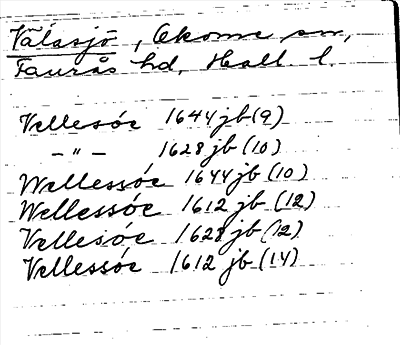 Välasjö, Okome sn,
Faurås hd, Hall. l.
Vellesöe 1644 jb (9)
-"- 1628 jb (10)
Wellessöe 1644 jb (10)
Wellessöe 1612 jb (12)
Vellesöe 1628 jb (12)
Vellessöe 1612 jb (14)